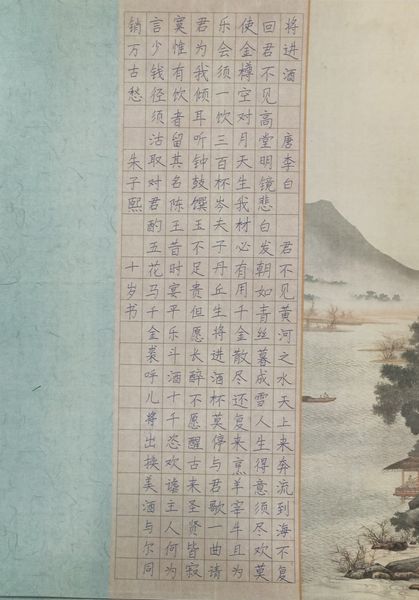 将进酒 唐李白 君不见黄河之水天上来奔流到海不复
回君不见高堂明镜悲白发朝如青丝暮成雪人生得意须尽欢莫
使金樽空对月天生我材必有用千金散尽还复来烹羊宰牛且为
乐会须一饮三百杯岑夫子丹丘生将进酒杯莫停与君歌一曲请
君为我倾耳听钟鼓馔玉不足贵但愿长醉不愿醒古来圣贤皆寂
寞惟有饮者留其名陈王昔时宴平乐斗酒十千恣欢谑主人何为
言少钱径须沽取对君酌五花马千金裘呼儿将出换美酒与尔同
销万古愁 朱子熙 十岁书